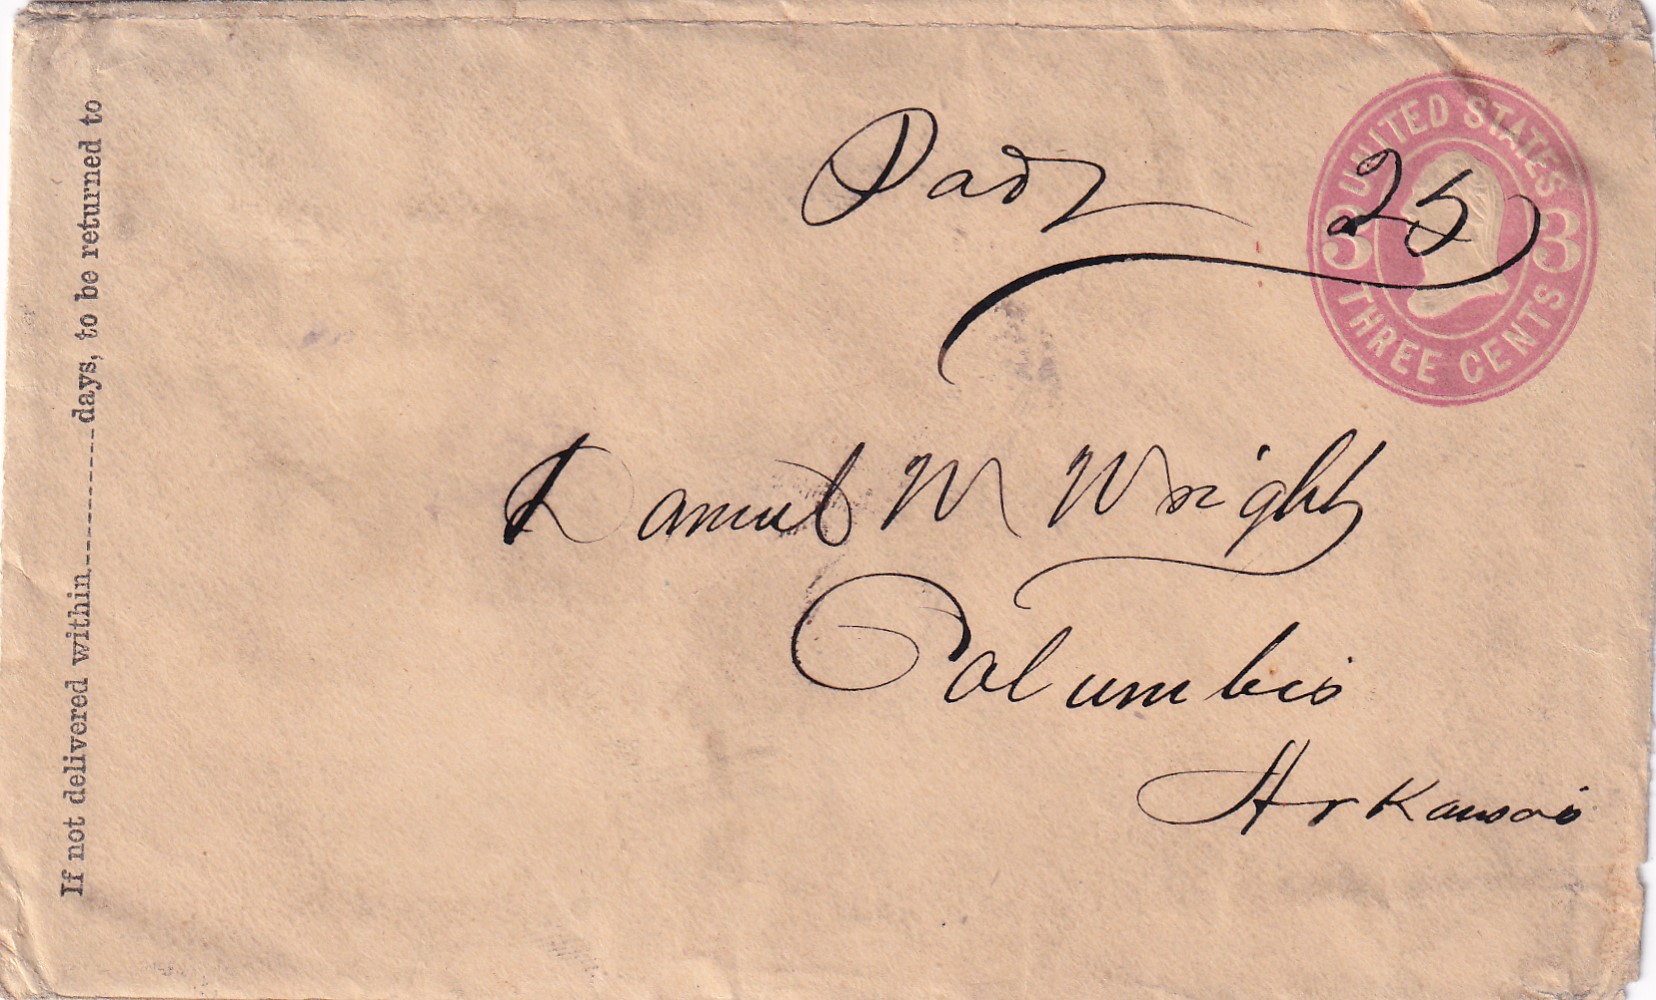 If not delivered within ---------- days, to be returned to
UNITED STATES
3 3
THREE CENTS
Paid 25
Samuel M Wright
Columbis
Arkansas